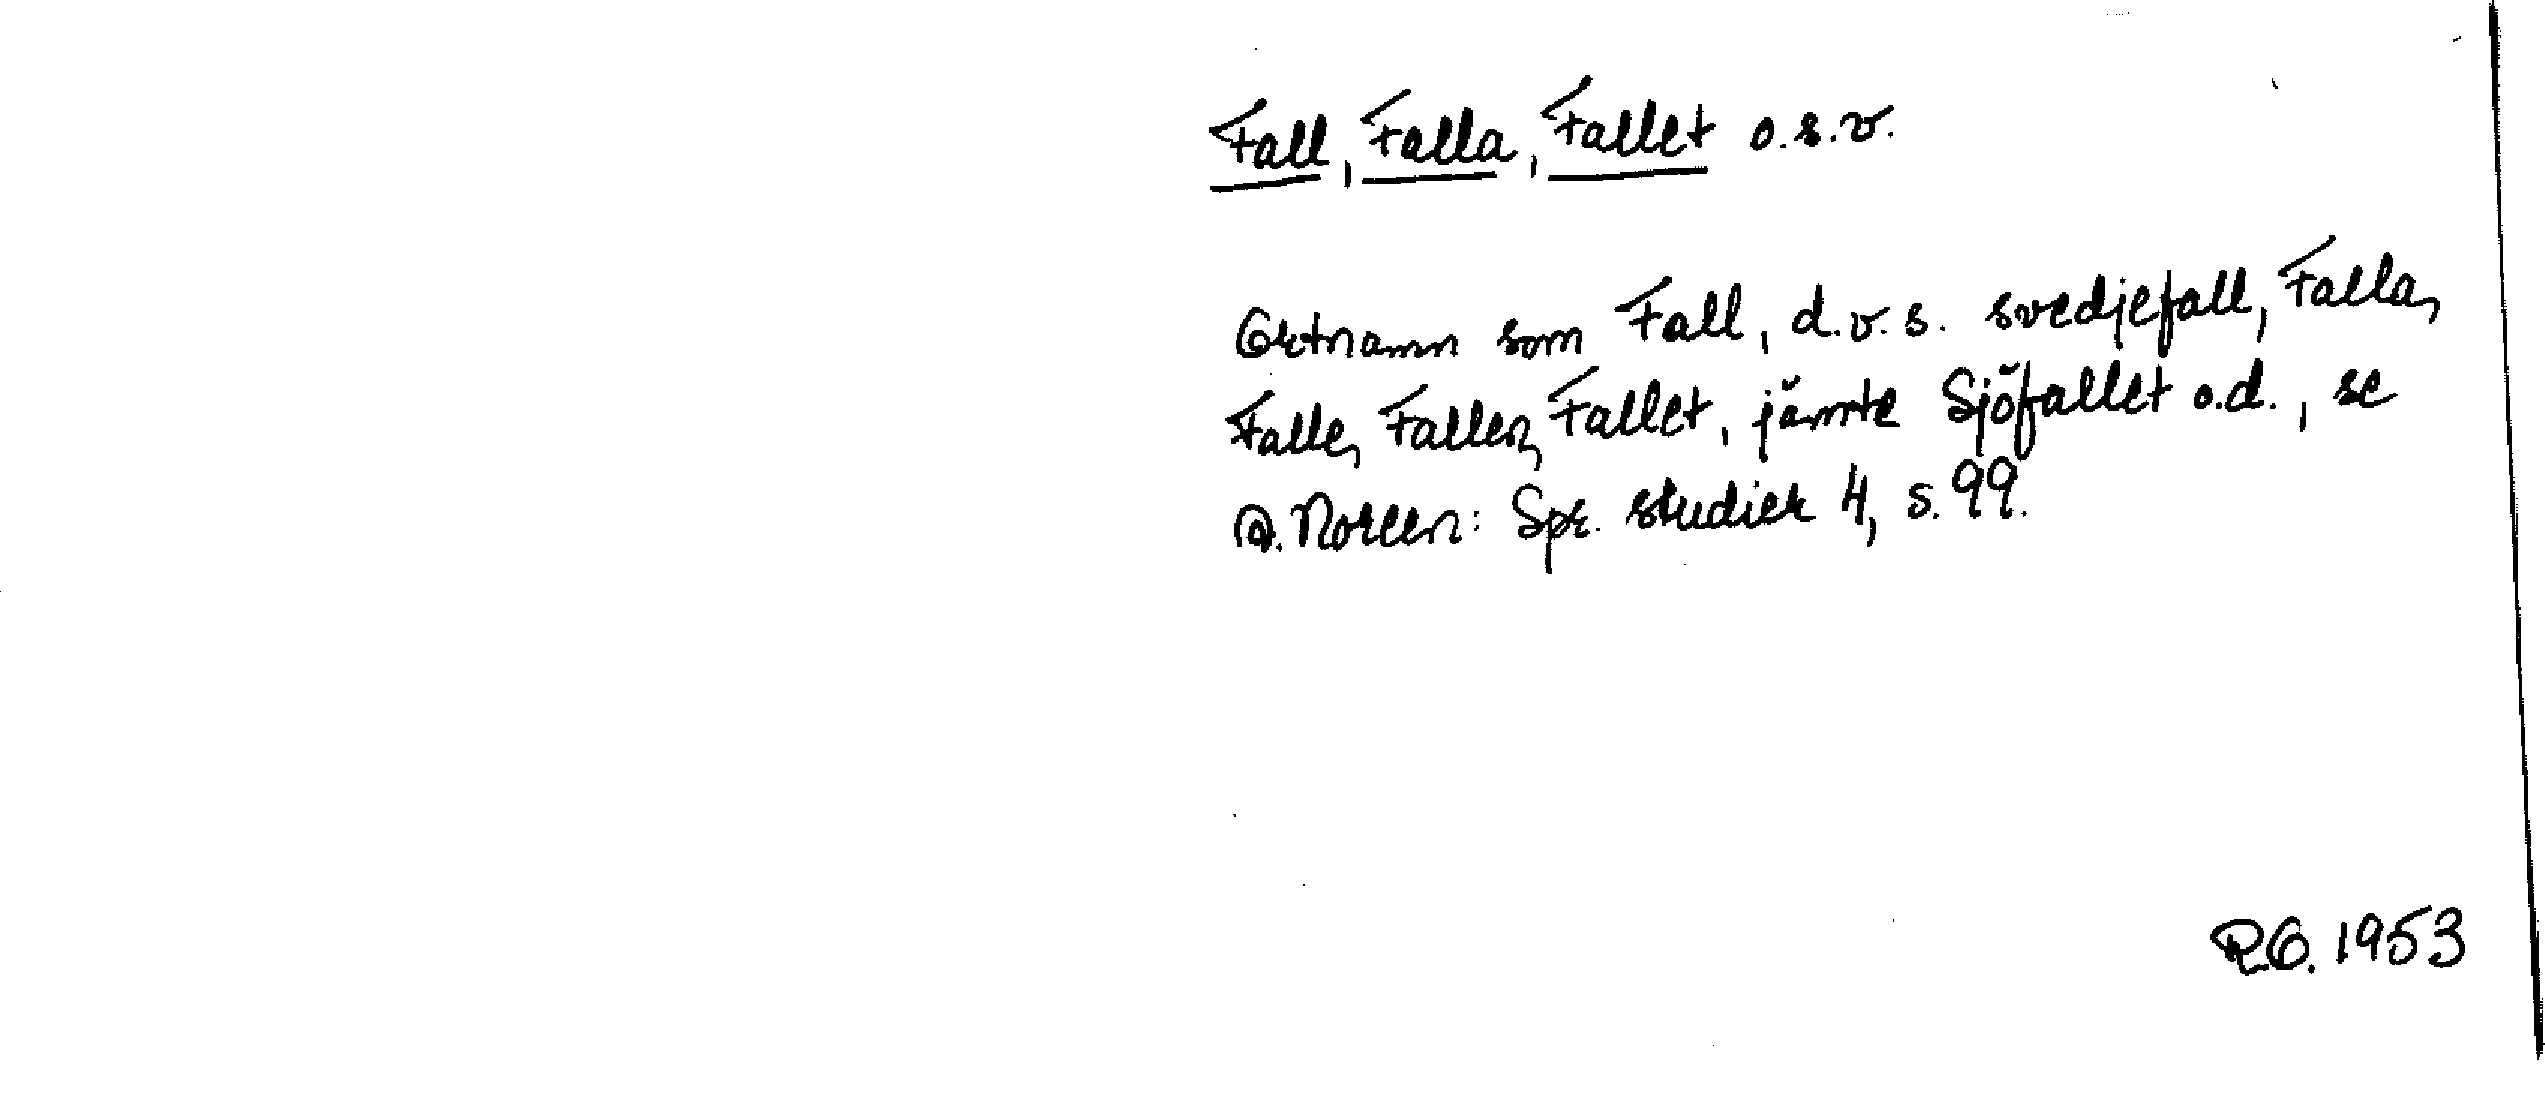 Fall, Falla, Fallet o.s.v.
Ortnamn som Fall, d.v.s. svedjefall, Falla,
Falle, Fallen, Fallet, jämte Sjöfallet o.d., se
A. Noreen: Spr. studier 4, s. 99.
R.O. 1953